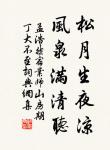 松月生夜涼
風泉滿清聽
孟浩然宿業師山房期
丁大不至詞典網集